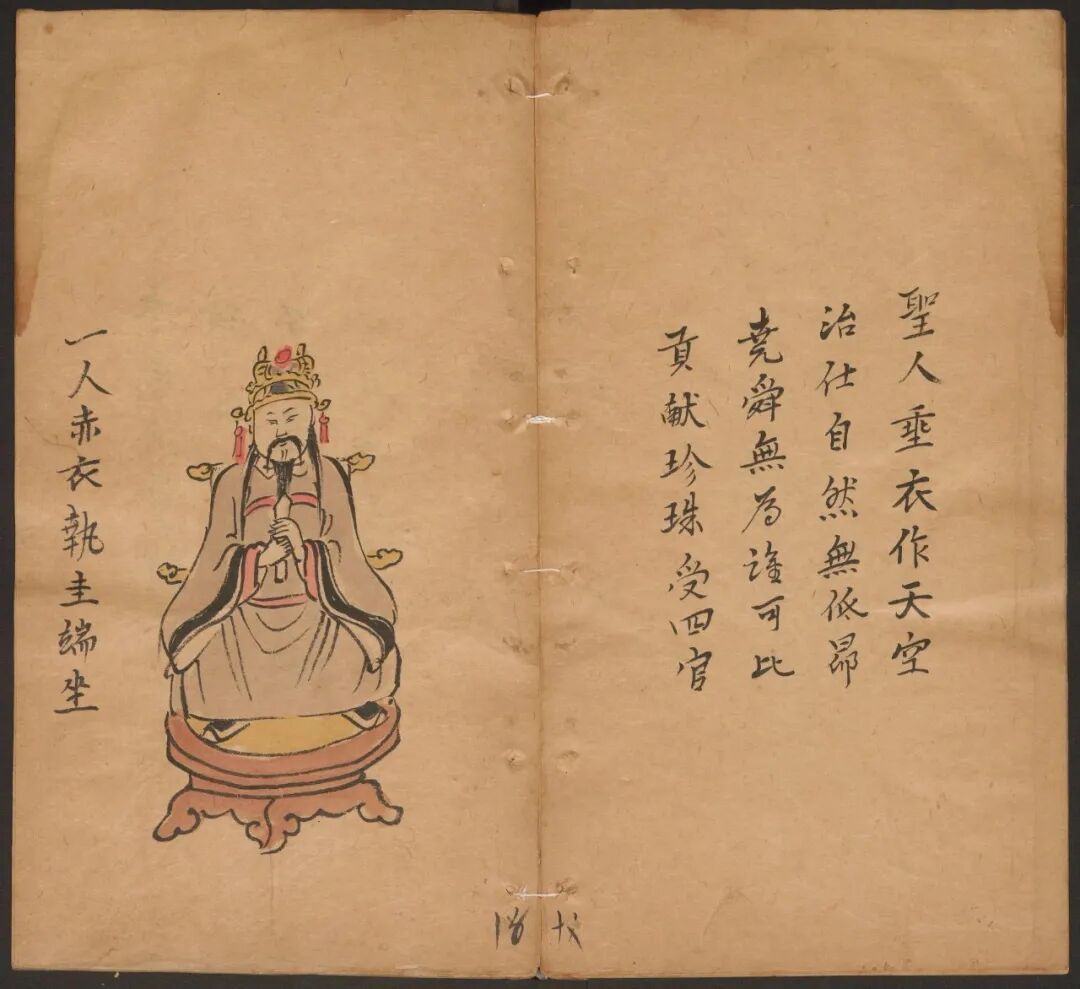 聖人垂衣作天空
治仕自然無低昂
堯舜無為誰可比
貢献珍珠受四官
一人赤衣執圭端坐
18